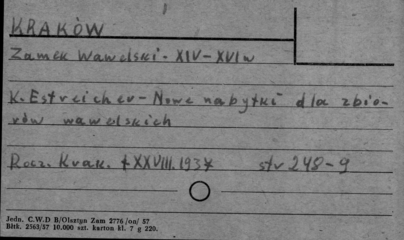 KRAKÓW
Zamek Wawelski - XIV - XVI w
K. Estreicher - Nowe nabytki dla zbio-
rów wawelskich
Rocz. Krak. XXVIII. 1937 str 248-9
Jedn. C.W.D B/Olsztyn Zam 2776/on/ 57
Bltk. 2563/57 10.000 szt. karton kl. 7 g 220.